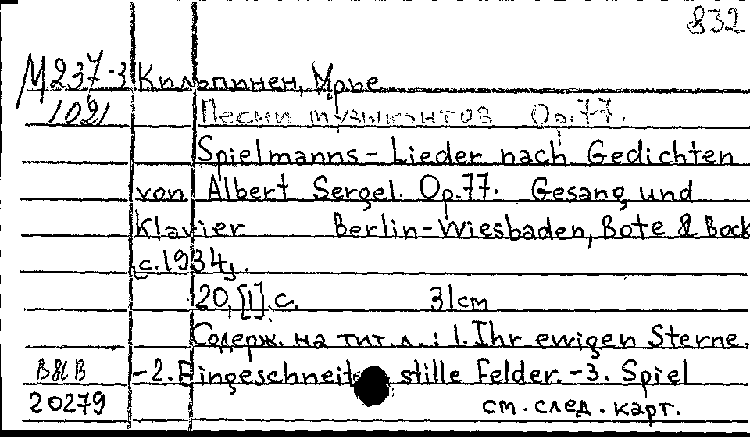 832
М237-3 Кильпинен, Урье
1021 Песни музыкантов Op.77.
Spielmanns-Lieder nach Gedichten
von Albert Sergel. Op.77. Gesang und
Klavier Berlin-Wiesbaden, Bote & Bock
[c.1934].
20, [1] c. 31см
Содерж. на тит. л.: 1. Ihr ewigen Sterne.
B&B -2. Eingeschneite stille Felder. -3. Spiel
20279 см. след. карт.